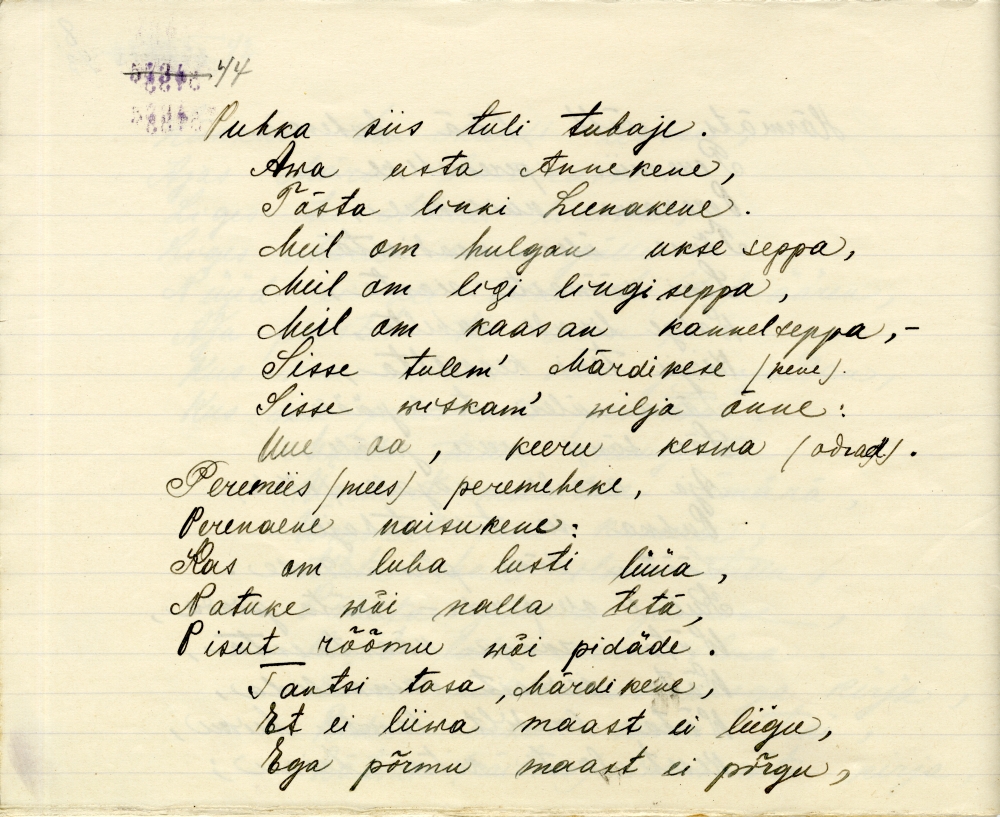 44
Puhka siis tuli tubaje.
Awa usta Annekene,
Tõsta linki Leenakene.
Meil om hulgan ukse seppa,
Meil om ligi lingi seppa,
Meil om kaasan kannelseppa,-
Sisse tulem' Märdikese (kene).
Sisse wiskam' wilja õnne:
Uue oa, keeru keswa (odrad).
Peremiis (mees) peremeheke,
Perenaene naisukene:
Kas om luba lusti lüüa,
Natuke wõi nalla tetä,
Pisut rõõmu wõi pidäde.
Tantsi tasa, Märdikene,
Et ei liiwa maast ei liigu,
Ega põrmu maast ei põrgu,